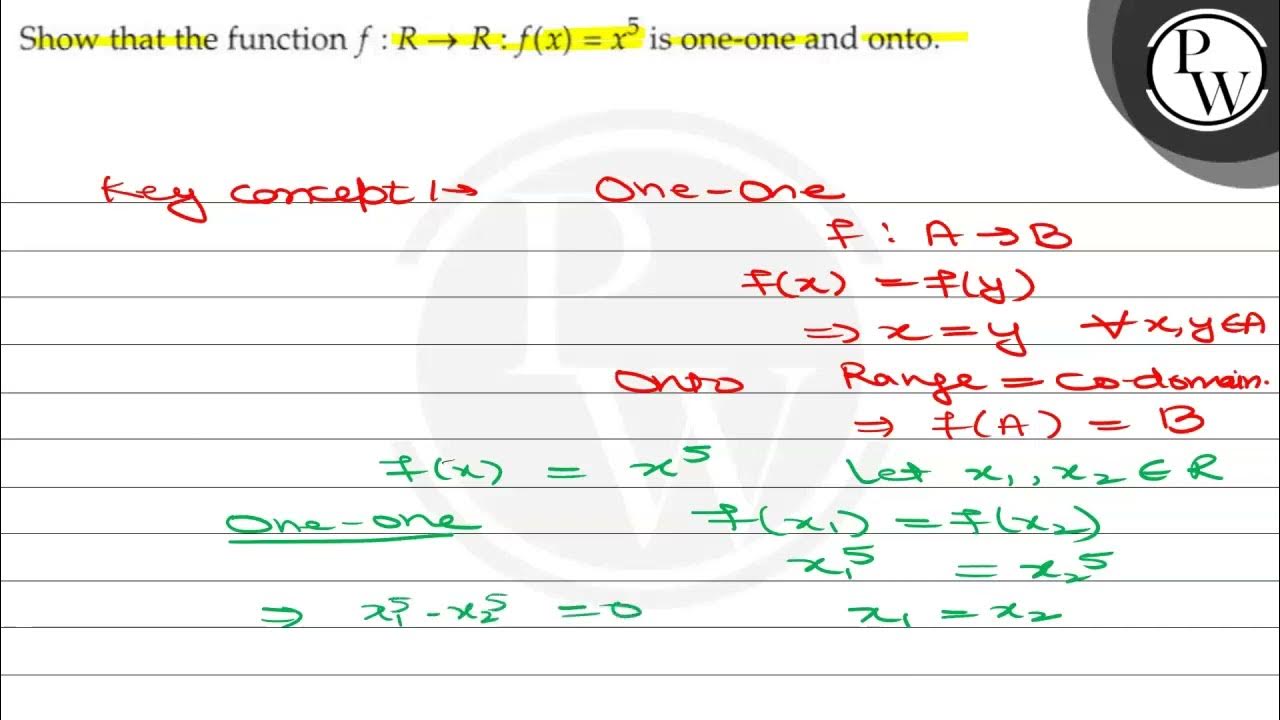 Show that the function f : R → R : f(x) = x⁵ is one-one and onto.
P
W
Key concept :→ One-One
f : A → B
f(x) = f(y)
⇒ x = y ∀ x, y ∈ A
Onto Range = Co-domain.
⇒ f(A) = B
f(x) = x⁵ Let x₁, x₂ ∈ R
One-one f(x₁) = f(x₂)
x₁⁵ = x₂⁵
⇒ x₁⁵ - x₂⁵ = 0 x₁ = x₂